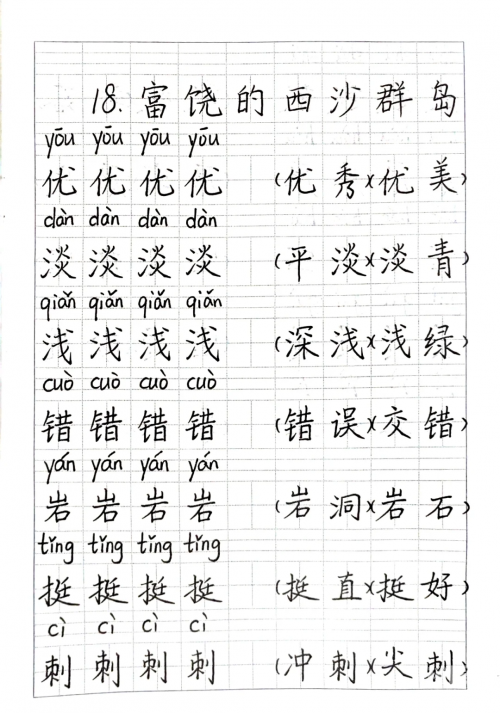 18. 富饶的西沙群岛
yōu yōu yōu yōu
优 优 优 优 (优秀)(优美)
dàn dàn dàn dàn
淡 淡 淡 淡 (平淡)(淡青)
qiǎn qiǎn qiǎn qiǎn
浅 浅 浅 浅 (深浅)(浅绿)
cuò cuò cuò cuò
错 错 错 错 (错误)(交错)
yán yán yán yán
岩 岩 岩 岩 (岩洞)(岩石)
tǐng tǐng tǐng tǐng
挺 挺 挺 挺 (挺直)(挺好)
cì cì cì cì
刺 刺 刺 刺 (冲刺)(尖刺)